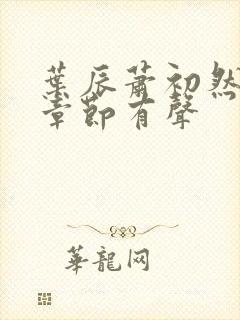 葉辰蕭初然
章節有聲
華龍网